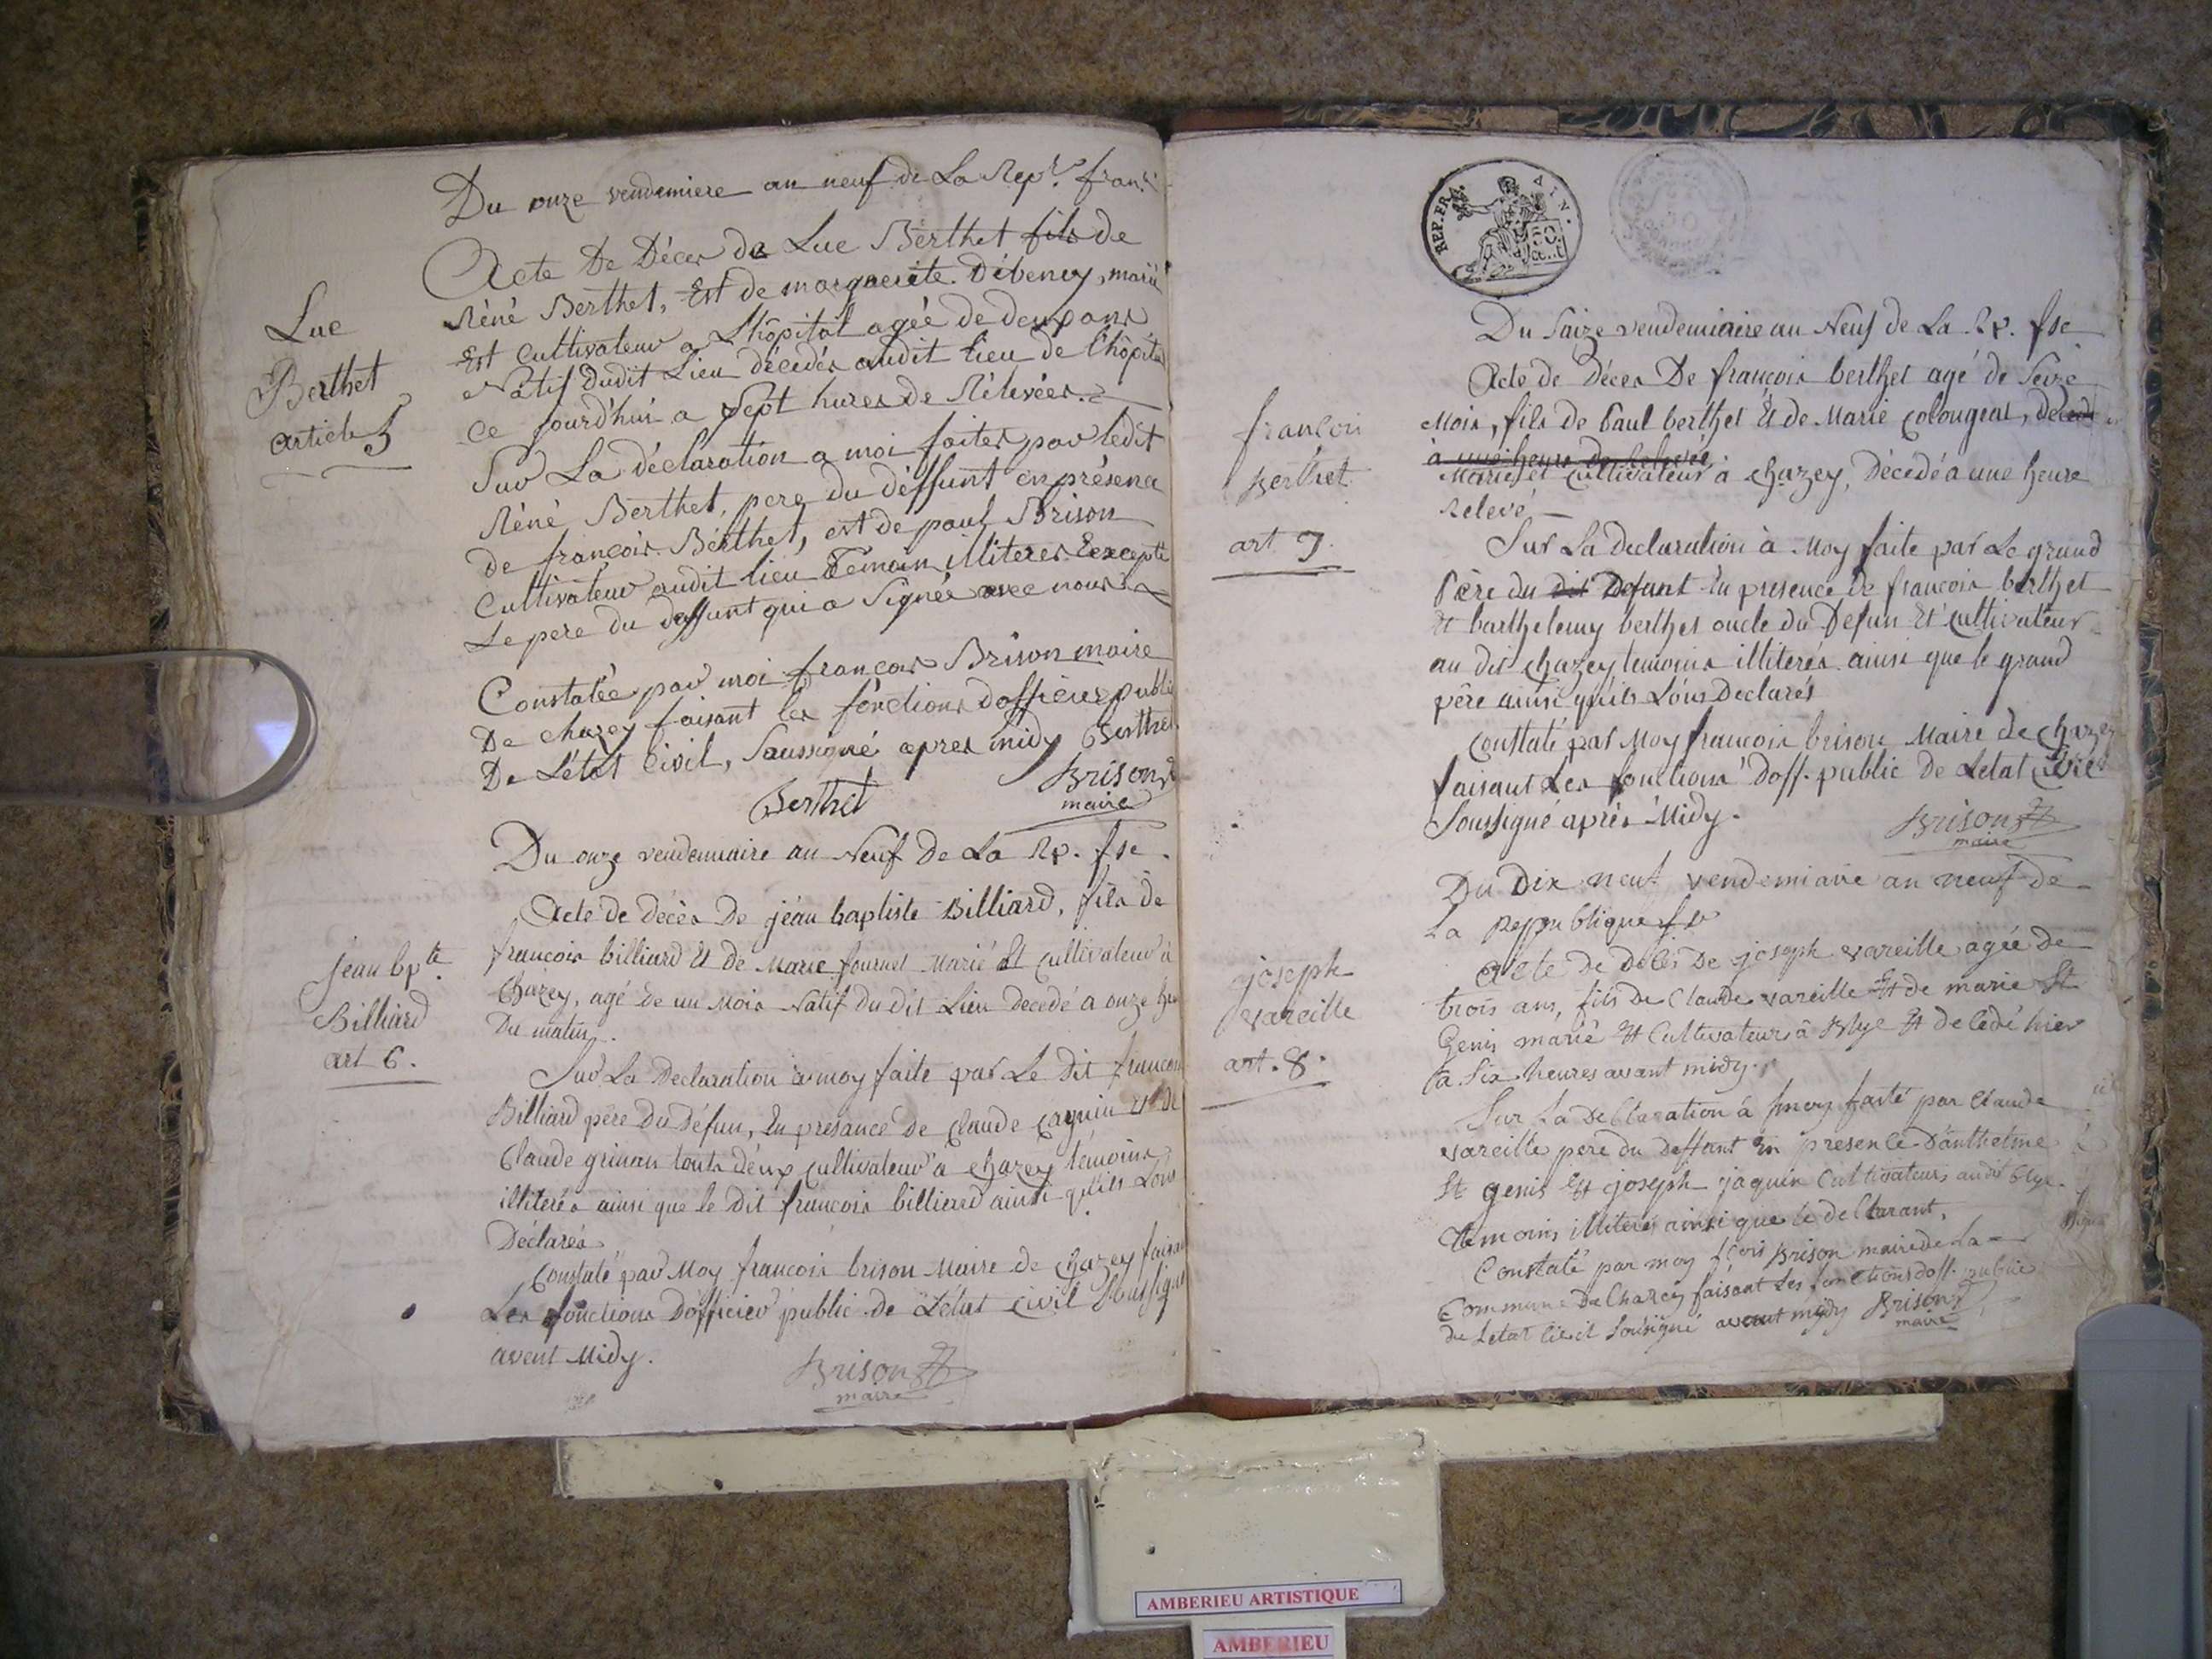 Du onze vendemiere an neuf de La Rep.e fran.
Luc
Berthet
article 5
Acte De Décer de Luc Berthet fils de
Réné Berthet, Est de marguerite Débeney, marié
Est Cultivateur a L'hôpital agée de deux ans
Natif dudit Lieu décedés audit lieu de l'hôpital
Ce jourd'hui a sept hures de Rélevées.
Sur La déclaration a moi faites par ledit
Réné Berthet, pere du déffunt en présence
De françois Berthet, est de paul Brison
Cultivateur audit lieu Témoin illiteres Excepté
Le pere du deffunt qui a Signée avec nous
Constatée par moi françois Brison maire
De chazey faisant les fonctions dofficier public
De L'état Civil, Saussigné apres midy Berthet
Berthet
Brison
maire
Du onze vendemiaire an Neuf de La Rp. fse.
jean bpte
Billiard
art 6.
Acte de décès De jéan baptiste Billiard, fils de
françois billiard Et de Marie fournet Marié Et Cultivateur à
Chazey, agé de un Mois Natif du dit Lieu decedé a onze heu
Du matin.
Sur La Declaration à moy faite par Le Dit francois
Billiard père du Défun, En presance de Claude Caquin Et de
Claude grinan touts déux Cultivateur a Chazey témoins
illiterés ainsi que le Dit françois billiard ainsi qu'ils Lon
Déclarés
Constaté par Moy françois brison Maire de Chazey faisan
Les fonctions Dofficier public de Létat Civil Soussigné
avent Midy.
Brison
maire
REP. FRA. AIN.
Du Saize vendemiaire an Neuf de La Rp. fse
françois
berthet
art 7.
Acte de Décès De françois berthet agé de Seize
Mois, fils de Paul berthet Et de Marie Colougeat, deced
à une heure de Relevée
Mariés et Cultivateur à Chazey, Décédé a une heure
Relevé
Sur La Declaration à Moy faite par Le grand
Père du dit Defunt En presence de françois berthet
Et barthelemy berthet oncle du Defun Et Cultivateur
au dit Chazey temoins illiterés ainsi que le grand
père ainsi qu'ils Lons Declarés
Constaté par Moy françois brison Maire de Chazey
faisant Les fonctions Doff. public De Letat Civil
Soussigné après Midy.
Brison
maire
Du Dix neuf vendemiaire an neuf de
La Republique fr
joseph
vareille
art. 8.
Acte de Décès De joseph vareille agée de
trois ans, fils De Claude vareille Et de marie St
Genis marié Et Cultivateur à Blye Et decedé hier
a Six heures avant midy.
Sur La Declaration à moy faite par Claude
vareille pere du deffunt En presence D'anthelme
St genis Et joseph jaquin Cultivateurs audit Blye
temoins illiterés ainsi que le declarant.
Constaté par moy fçois Brison maire de La
Commune De Chazey faisant Les fonctions doff. public
du Letat Civil Sousigné avant midy Brison
maire
AMBERIEU ARTISTIQUE
AMBERIEU